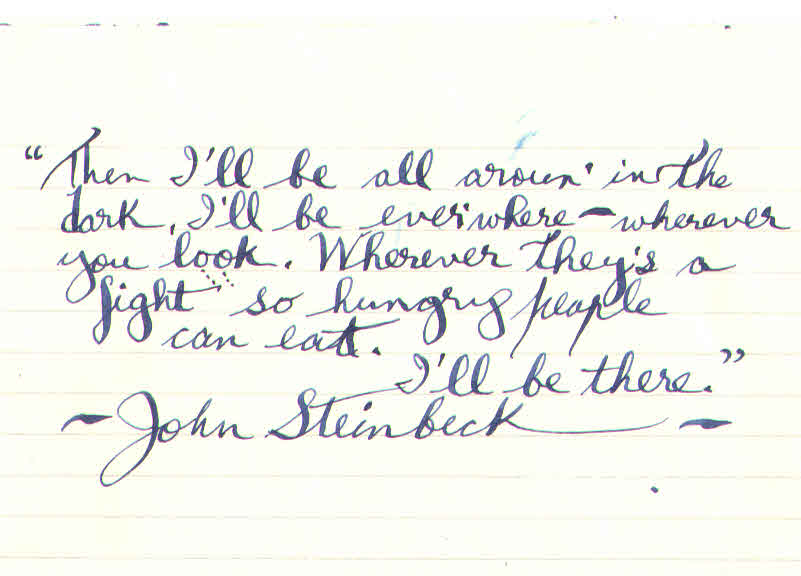 “Then I'll be all aroun' in the
dark, I'll be ever'where - wherever
you look. Wherever they's a
fight so hungry people
can eat.
I'll be there.”
~ John Steinbeck ~